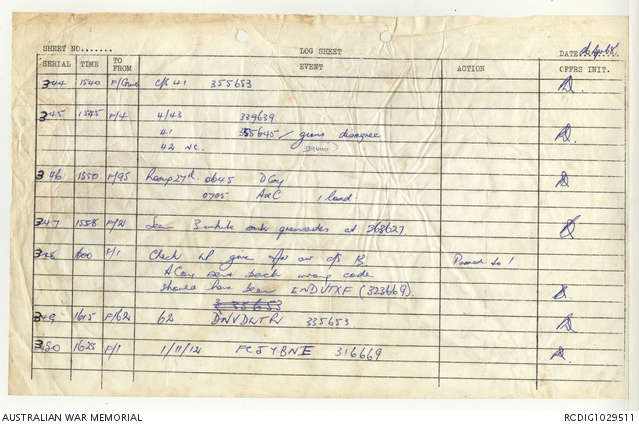 SHEET NO....... LOG SHEET DATE
SERIAL TIME TO FROM EVENT ACTION OFFRS INIT.
344 1540 F/Guns C/S 41 355653
345 1545 F/4 4/43 339639
41 355645 / guns disagree
42 NC.
346 1550 F/95 0645 D Coy
0705 A & C 1 land
347 1558 F/21 3 white smoke grenades at 268627.
348 1600 F/1 Check LP gave for our C/S Passed to 1
A Coy sent back wrong code
should have been ENDVTXF (323669).
349 1615 F/62 62 DNVDWTRV 335653
350 1625 F/1 1/11/12 FCJYBNE 316669
AUSTRALIAN WAR MEMORIAL RCDIG1029511